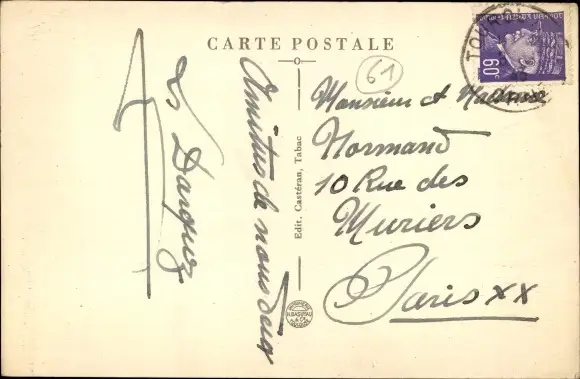 CARTE POSTALE
61
Amitiés de nous deux
Edit. Castéran, Tabac
Monsieur et Madame
Normand
10 Rue des
Muriers
Paris XX
60c
TOUL